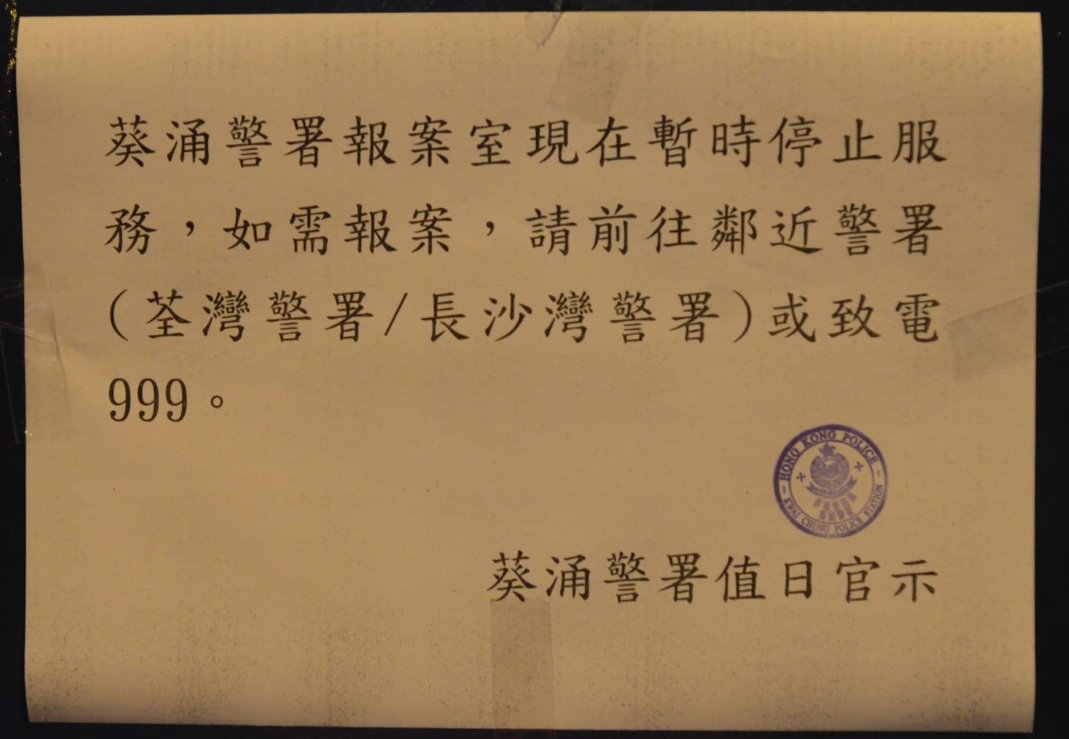 葵涌警署報案室現在暫時停止服
務，如需報案，請前往鄰近警署
(荃灣警署/長沙灣警署)或致電
999。
HONG KONG POLICE
KWAI CHUNG POLICE STATION
葵涌警署值日官示